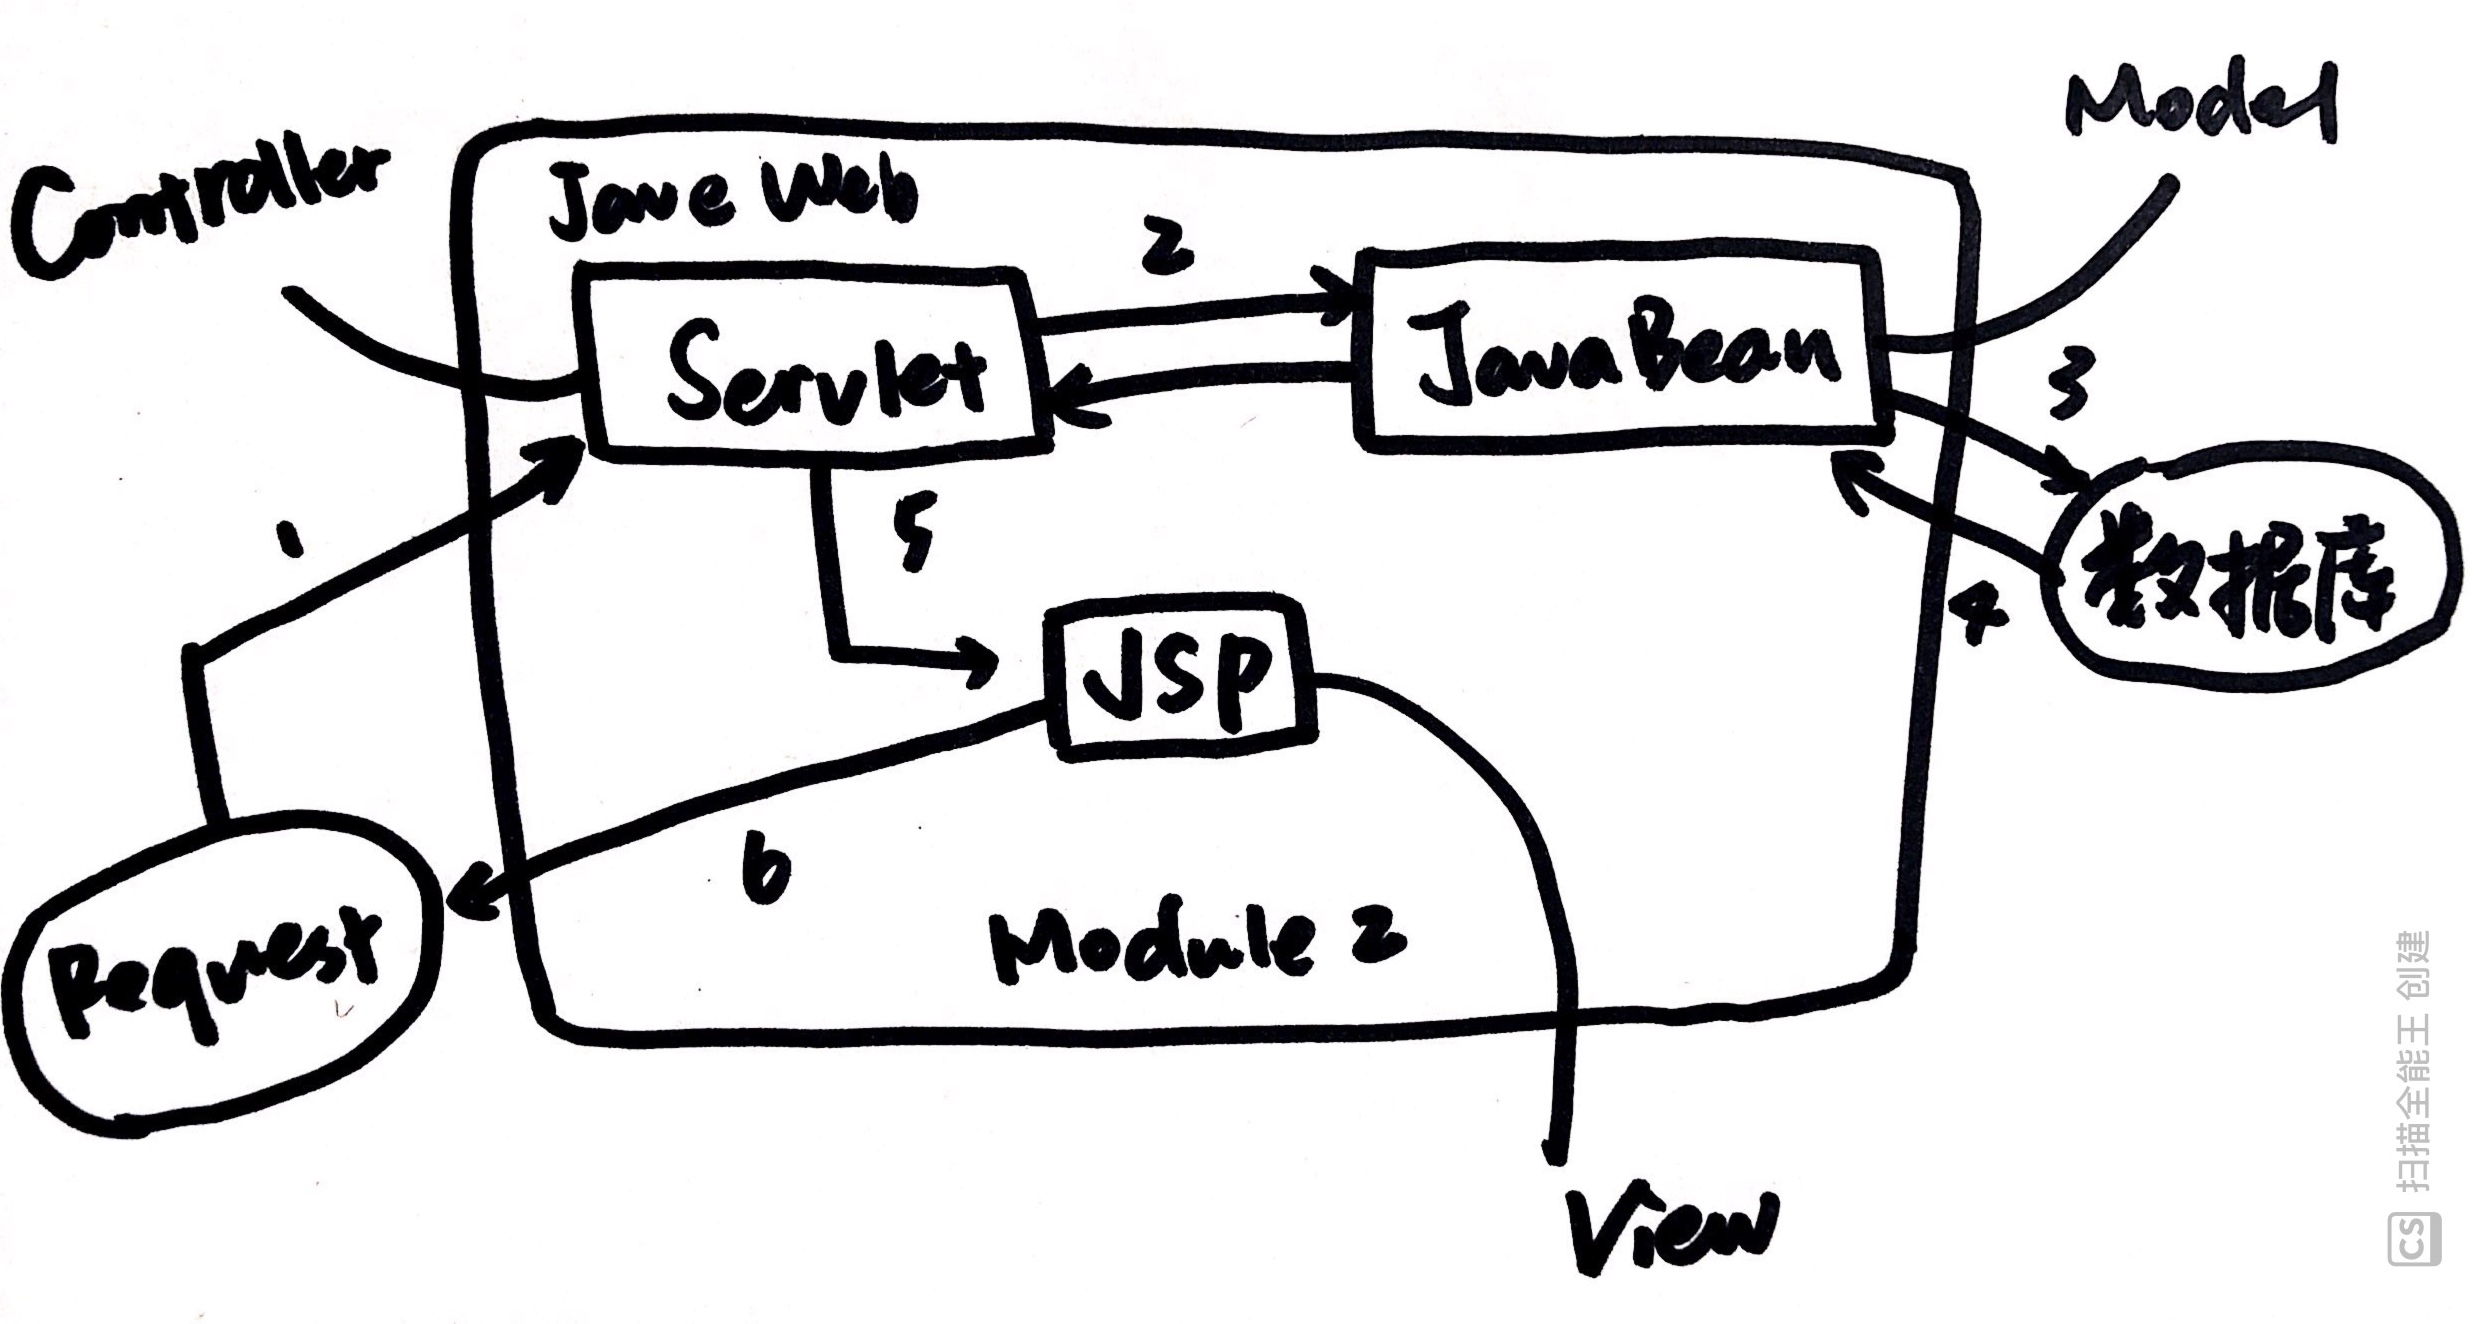 Model
Controller
Jave Web
2
Servlet
JavaBean
3
1
5
数据库
4
JSP
6
Request
Module 2
View
CS 扫描全能王 创建